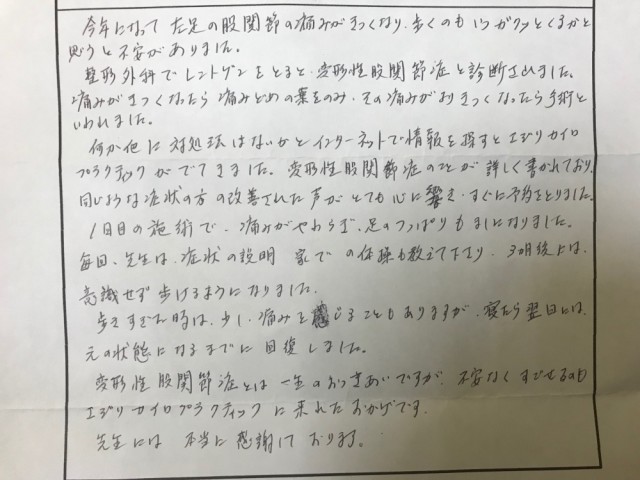 今年になって 左足の股関節の痛みがきつくなり、歩くのも いつガクッとくるかと
思うと不安がありました。
整形外科でレントゲンをとると、変形性股関節症と診断されました。
痛みがきつくなったら痛みどめの薬をのみ、その痛みがおきつくなったら手術と
いわれました。
何か他に対処法はないかとインターネットで情報を探すとエビリカイロ
プラクティックがでてきました。変形性股関節症のことが詳しく書かれており、
同じような症状の方の改善された声がとても心に響き、すぐに予約をとりました。
1日目の施術で、痛みがやわらぎ、足のつっぱりもましになりました。
毎回、先生は、症状の説明 家での体操も教えて下さり、3ヵ月後には、
意識せず歩けるようになりました。
歩きすぎた時は、少し、痛みを感じることもありますが、寝たら翌日には、
元の状態になるまでに回復しました。
変形性股関節症とは一生のおつきあいですが、不安なくすごせるのも
エビリカイロプラクティックに来れたおかげです。
先生には 本当に感謝しております。